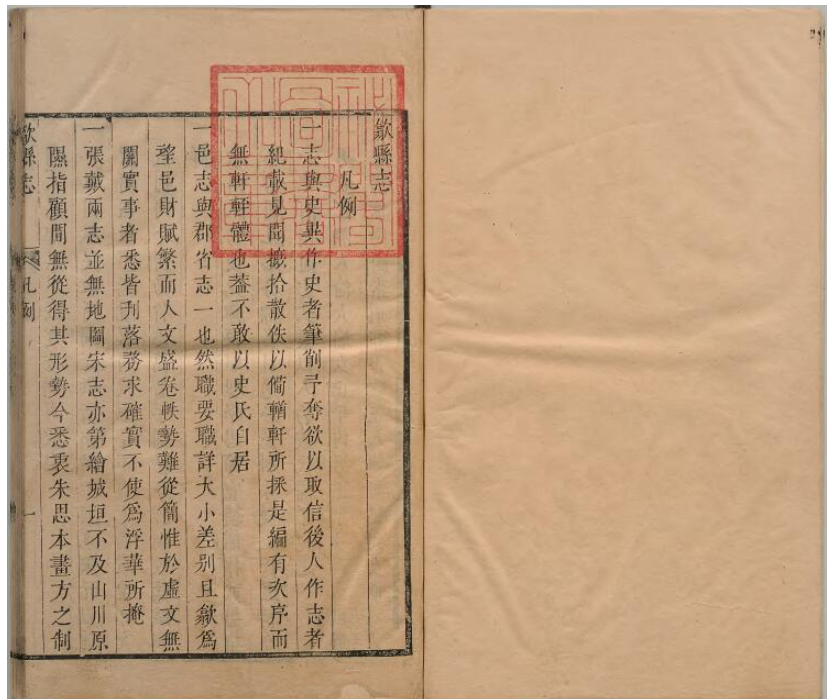 歙縣志
凡例
一志與史異作史者筆削予奪欲以取信後人作志者
紀載見聞摭拾散佚以備輶軒所採是編有次序而
無軒輊體也蓋不敢以史氏自居
一邑志與郡省志一也然職要職詳大小差别且歙爲
望邑財賦繁而人文盛卷帙勢難從簡惟於虛文無
關實事者悉皆刋落務求確實不使爲浮華所掩
一張戴兩志並無地圖宋志亦第繪城垣不及山川原
隰指顧間無從得其形勢今悉衷朱思本畫方之制
歙縣志
凡例
一